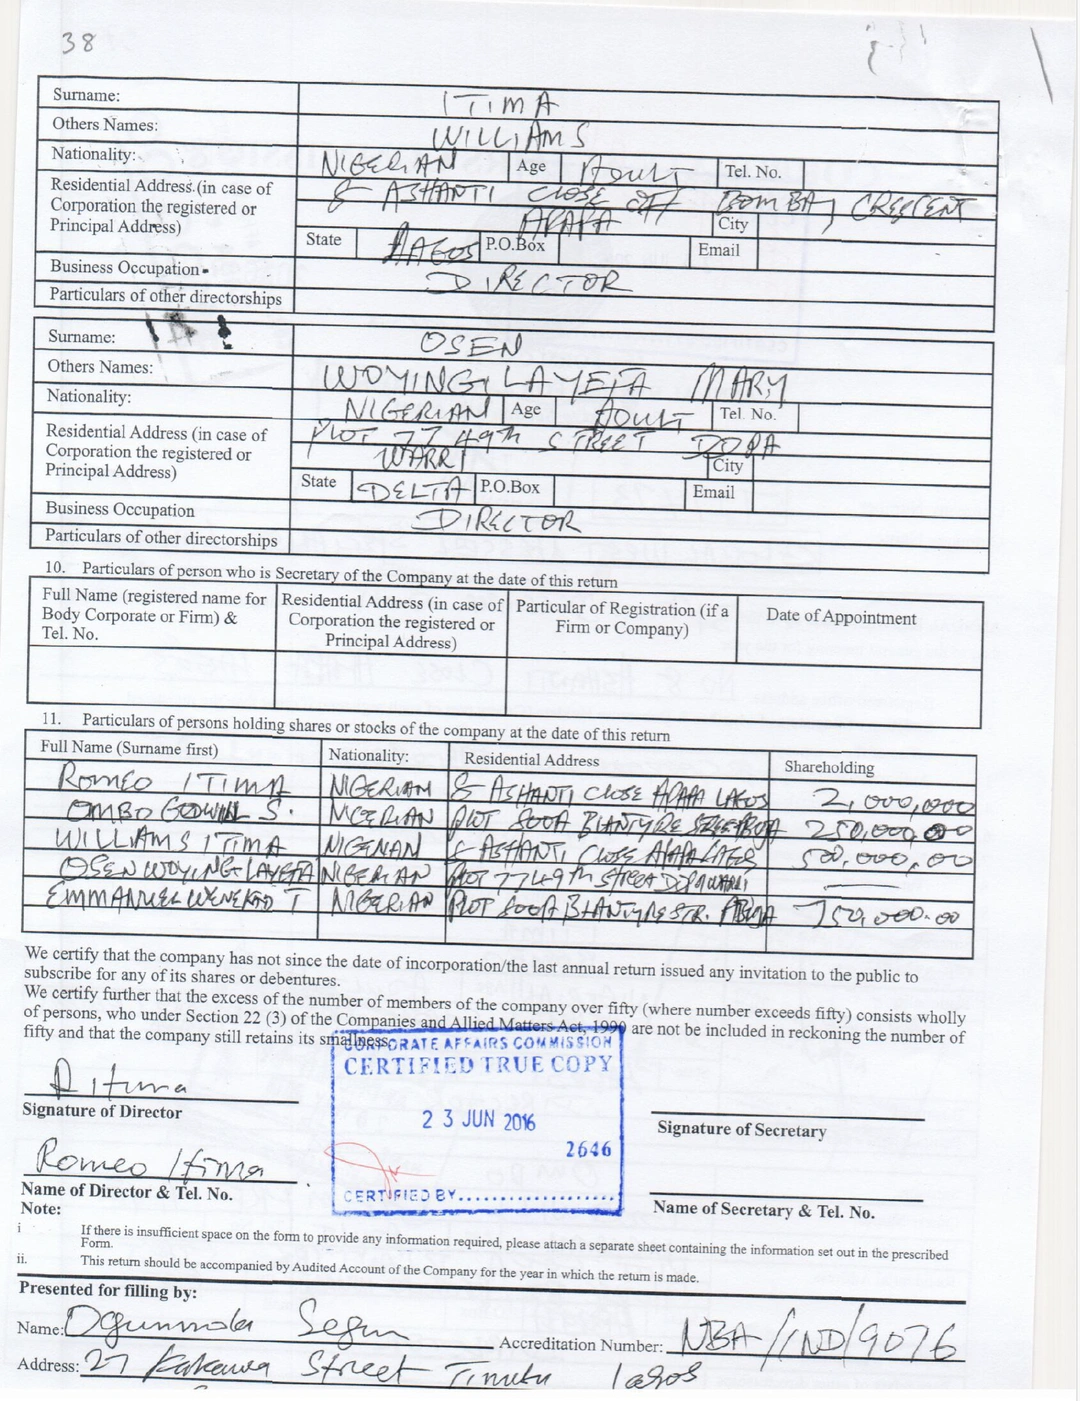 38
Surname: ITIMA
Others Names: WILLIAMS
Nationality: NIGERIAN Age ADULT Tel. No.
Residential Address (in case of Corporation the registered or Principal Address)
8 ASHANTI CLOSE OFF BOMBAY CRESCENT
APAPA City
State LAGOS P.O.Box Email
Business Occupation DIRECTOR
Particulars of other directorships
Surname: OSEN
Others Names: WOYINGILAYEFA MARY
Nationality: NIGERIAN Age ADULT Tel. No.
Residential Address (in case of Corporation the registered or Principal Address)
PLOT 77 49th STREET DDPA
WARRI City
State DELTA P.O.Box Email
Business Occupation DIRECTOR
Particulars of other directorships
10. Particulars of person who is Secretary of the Company at the date of this return
Full Name (registered name for Body Corporate or Firm) & Tel. No.
Residential Address (in case of Corporation the registered or Principal Address)
Particular of Registration (if a Firm or Company)
Date of Appointment
11. Particulars of persons holding shares or stocks of the company at the date of this return
Full Name (Surname first) Nationality: Residential Address Shareholding
ROMEO ITIMA NIGERIAN 8 ASHANTI CLOSE APAPA LAGOS 2,000,000
OMBO GODWIN S. NIGERIAN PLOT 800A BLANTYRE 250,000,00
WILLIAMS ITIMA NIGERIAN 8 ASHANTI CLOSE APAPA LAGOS 500,000,00
OSEN WOYINGILAYEFA NIGERIAN PLOT 77 49th STREET DDPA WARRI
EMMANUEL T NIGERIAN PLOT 800A BLANTYRE STR. ABUJA 750,000.00
We certify that the company has not since the date of incorporation/the last annual return issued any invitation to the public to
subscribe for any of its shares or debentures.
We certify further that the excess of the number of members of the company over fifty (where number exceeds fifty) consists wholly
of persons, who under Section 22 (3) of the Companies and Allied Matters Act, 1990 are not be included in reckoning the number of
fifty and that the company still retains its smallness.
CORPORATE AFFAIRS COMMISSION
CERTIFIED TRUE COPY
23 JUN 2016
2646
CERTIFIED BY....................
Signature of Director
Signature of Secretary
Romeo Itima
Name of Director & Tel. No.
Name of Secretary & Tel. No.
Note:
i If there is insufficient space on the form to provide any information required, please attach a separate sheet containing the information set out in the prescribed
Form.
ii. This return should be accompanied by Audited Account of the Company for the year in which the return is made.
Presented for filling by:
Name: Segun Accreditation Number: NBA/IND/9076
Address: 27 Kakawa Street Tinubu lagos